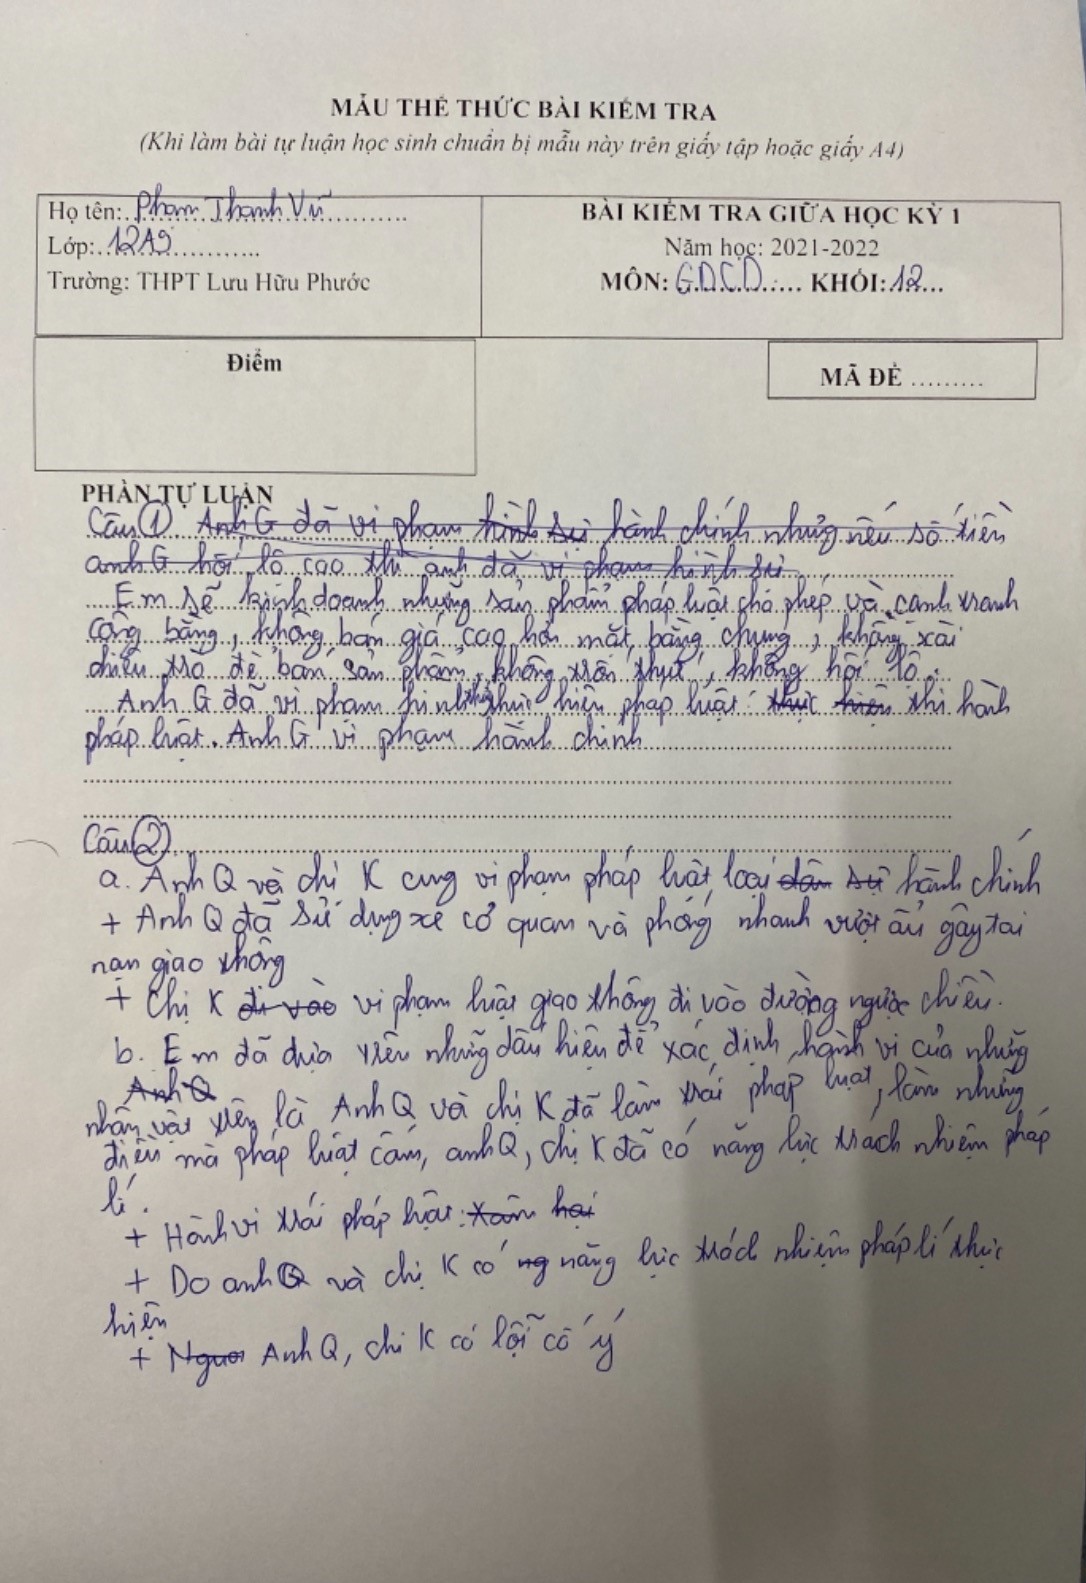 MẪU THỂ THỨC BÀI KIỂM TRA
(Khi làm bài tự luận học sinh chuẩn bị mẫu này trên giấy tập hoặc giấy A4)
Họ tên: Phạm Thanh Vũ
Lớp: 12A9
Trường: THPT Lưu Hữu Phước
BÀI KIỂM TRA GIỮA HỌC KỲ 1
Năm học: 2021-2022
MÔN: GDCD KHỐI: 12
Điểm
MÃ ĐỀ .........
PHẦN TỰ LUẬN
Câu 1 Anh G đã vi phạm hình sự hành chính nhưng nếu số tiền
anh G hối lộ cao thì anh đã vi phạm hình sự
Em sẽ kinh doanh những sản phẩm pháp luật cho phép và cạnh tranh
công bằng, không bán giá cao hơn mặt bằng chung, không xài
chiêu trò để bán sản phẩm, không trốn thuế, không hối lộ.
Anh G đã vi phạm hình thức thực hiện pháp luật: thực hiện thi hành
pháp luật. Anh G vi phạm hành chính
Câu 2
a. Anh Q và chị K cùng vi phạm pháp luật loại dân sự hành chính
+ Anh Q đã sử dụng xe cơ quan và phóng nhanh vượt ẩu gây tai
nạn giao thông
+ Chị K đi vào vi phạm luật giao thông đi vào đường ngược chiều.
b. Em đã dựa trên những dấu hiệu để xác định hành vi của những
Anh Q
nhân vật trên là Anh Q và chị K đã làm trái pháp luật, làm những
điều mà pháp luật cấm, anh Q, chị K đã có năng lực trách nhiệm pháp
lí.
+ Hành vi trái pháp luật: xâm hại
+ Do anh Q và chị K có ng năng lực trách nhiệm pháp lí thực
hiện
+ Người Anh Q, chị K có lỗi cố ý